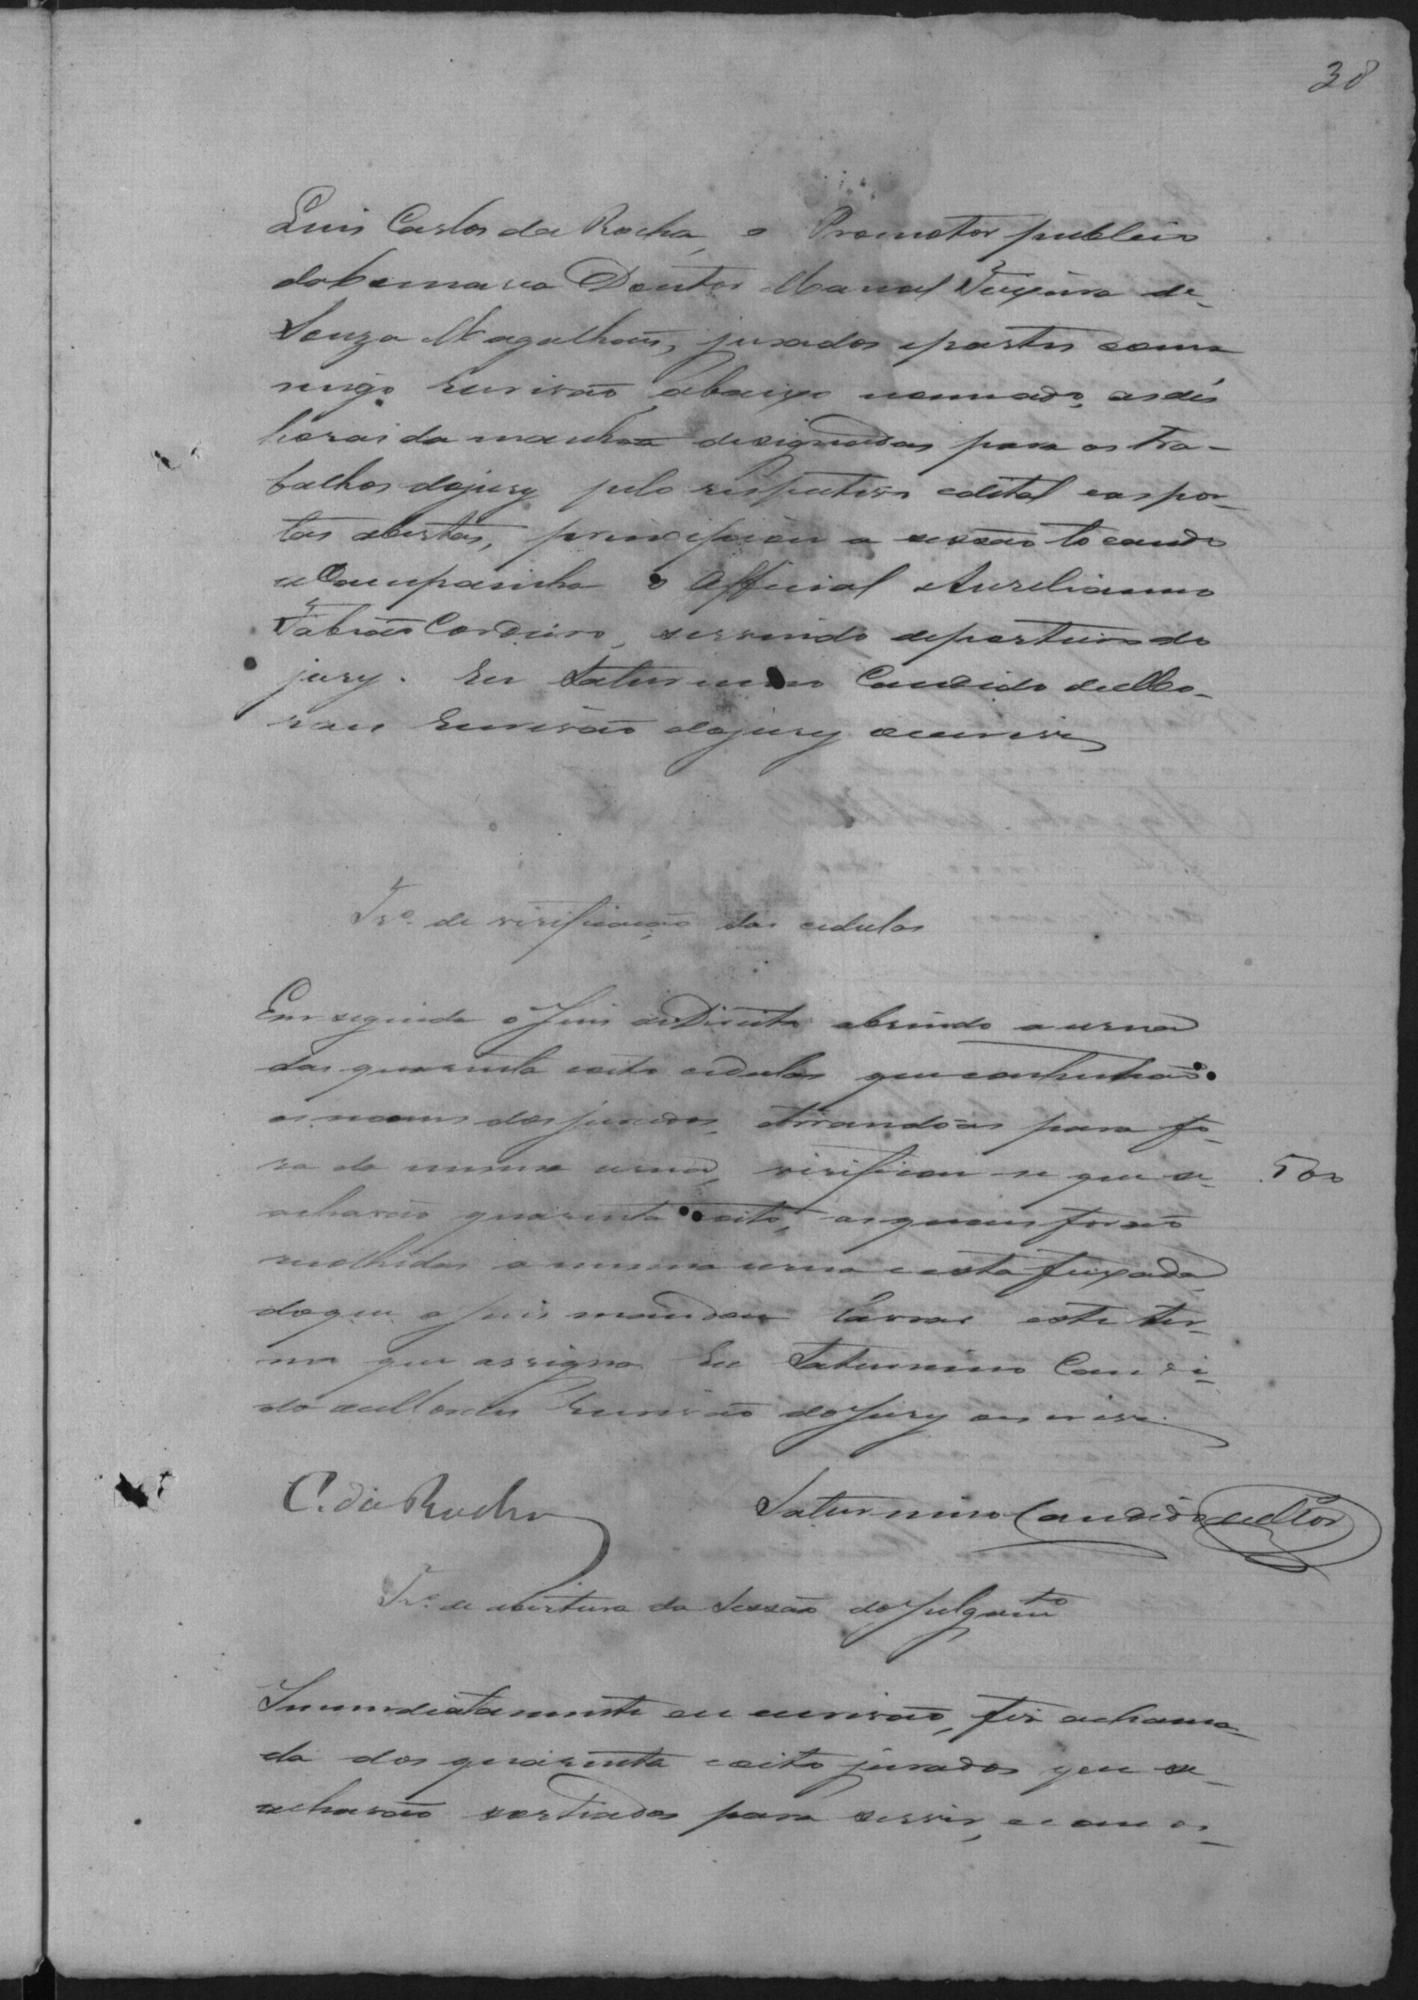 38
Luis Carlos da Rocha, o Promotor publico
da Comarca Doutor Manoel Teixeira de
Souza Magalhães, jurados e partes com-
migo Escrivão abaixo nomeado, as dés
horas da manhã designadas para os tra-
balhos do jury pelo respectivo edital e as por-
tas abertas, principiou a sessão tocando
a Campainha o Official Aureliano
Fabião Cordeiro, servindo de porteiro do
jury. Eu Saturnino Candido de Mo-
raes Escrivão do jury escrevi
Tro. de verificação das cedulas
Em seguida o Juis de Direito abrindo a urna
das quarenta e oito cedulas que continhão
os nomes dos jurados, tirando-as para fo-
ra da mesma urna, verificou-se que se
500
achavão quarenta e oito, as quaes forão
recolhidas a mesma urna e esta fexada,
do que o Juis mandou lavrar este ter-
mo que assigna. Eu Saturnino Candi-
do de Moraes Escrivão do Jury escrevi.
C. da Rocha
Saturnino Candido de Mor
Tro. de abertura da Sessão do Julgamto
Immediatamente eu escrivão, fis a chama-
da dos quarenta e oito jurados que se
achavão sorteados para servir, e com os